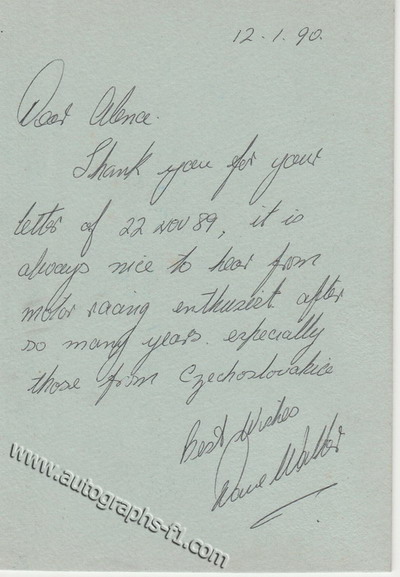 12.1.90.
Dear Alena.
Thank you for your
letter of 22 NOV 89, it is
always nice to hear from
motor racing enthusiast after
so many years. especially
those from Czechoslovakia
Best Wishes
Dave Walker
www.autographs-f1.com